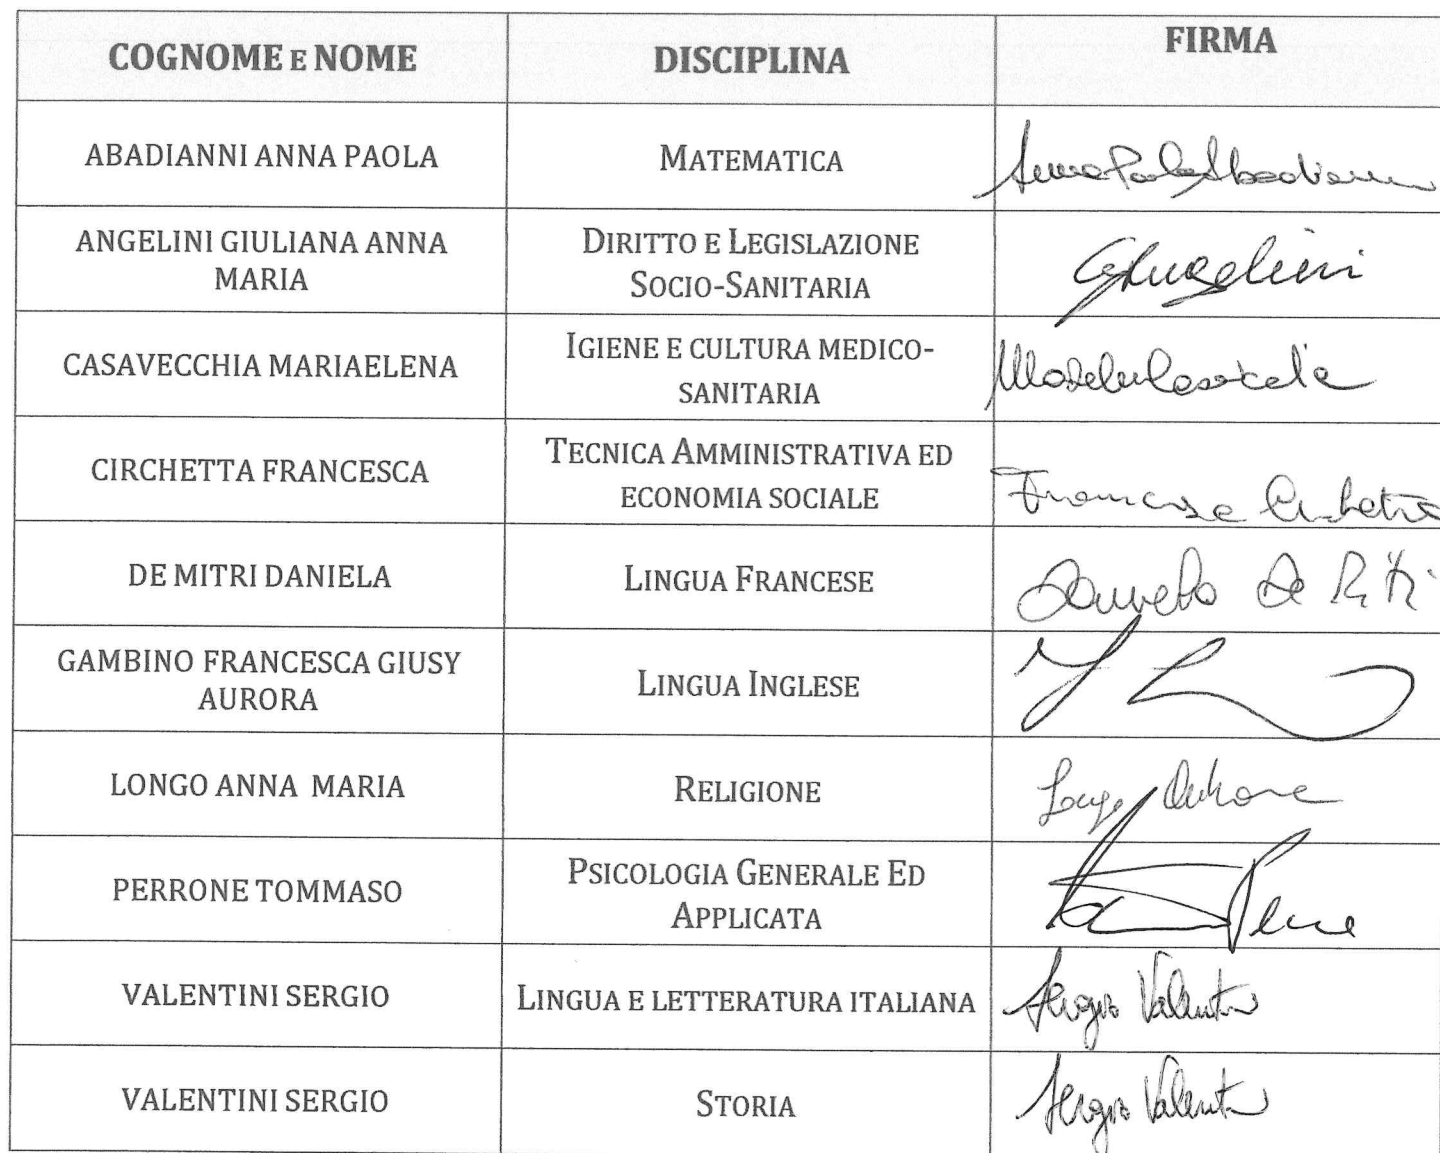 COGNOME E NOME
DISCIPLINA
FIRMA
ABADIANNI ANNA PAOLA
MATEMATICA
Anna Paola Abadianni
ANGELINI GIULIANA ANNA
MARIA
DIRITTO E LEGISLAZIONE
SOCIO-SANITARIA
CASAVECCHIA MARIAELENA
IGIENE E CULTURA MEDICO-
SANITARIA
CIRCHETTA FRANCESCA
TECNICA AMMINISTRATIVA ED
ECONOMIA SOCIALE
Francesca Circhetta
DE MITRI DANIELA
LINGUA FRANCESE
Daniela De Mitri
GAMBINO FRANCESCA GIUSY
AURORA
LINGUA INGLESE
LONGO ANNA MARIA
RELIGIONE
PERRONE TOMMASO
PSICOLOGIA GENERALE ED
APPLICATA
VALENTINI SERGIO
LINGUA E LETTERATURA ITALIANA
Sergio Valentini
VALENTINI SERGIO
STORIA
Sergio Valentini